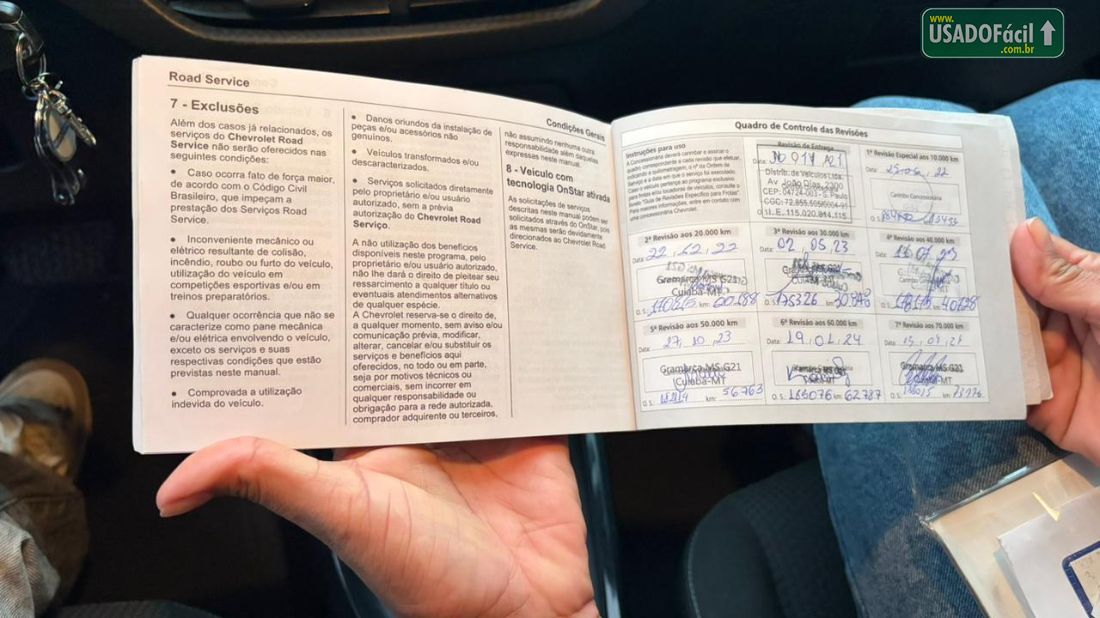 www.
USADOFácil
.com.br
Road Service
7 - Exclusões
Além dos casos já relacionados, os
serviços do Chevrolet Road
Service não serão oferecidos nas
seguintes condições:
● Caso ocorra fato de força maior,
de acordo com o Código Civil
Brasileiro, que impeçam a
prestação dos Serviços Road
Service.
● Inconveniente mecânico ou
elétrico resultante de colisão,
incêndio, roubo ou furto do veículo,
utilização do veículo em
competições esportivas e/ou em
treinos preparatórios.
● Qualquer ocorrência que não se
caracterize como pane mecânica
e/ou elétrica envolvendo o veículo,
exceto os serviços e suas
respectivas condições que estão
previstas neste manual.
● Comprovada a utilização
indevida do veículo.
● Danos oriundos da instalação de
peças e/ou acessórios não
genuínos.
● Veículos transformados e/ou
descaracterizados.
● Serviços solicitados diretamente
pelo proprietário e/ou usuário
autorizado, sem a prévia
autorização do Chevrolet Road
Serviço.
A não utilização dos benefícios
disponíveis neste programa, pelo
proprietário e/ou usuário autorizado,
não lhe dará o direito de pleitear seu
ressarcimento a qualquer título ou
eventuais atendimentos alternativos
de qualquer espécie.
A Chevrolet reserva-se o direito de,
a qualquer momento, sem aviso e/ou
comunicação prévia, modificar,
alterar, cancelar e/ou substituir os
serviços e benefícios aqui
oferecidos, no todo ou em parte,
seja por motivos técnicos ou
comerciais, sem incorrer em
qualquer responsabilidade ou
obrigação para a rede autorizada,
comprador adquirente ou terceiros,
Condições Gerais
não assumindo nenhuma outra
responsabilidade além daquelas
expressas neste manual.
8 - Veículo com
tecnologia OnStar ativada
As solicitações de serviços
descritas neste manual podem ser
solicitados através do OnStar, pois
as mesmas serão devidamente
direcionados ao Chevrolet Road
Service.
Quadro de Controle das Revisões
Instruções para uso
A Concessionária deverá carimbar e assinar o
quadro correspondente a cada revisão que efetuar,
indicando a quilometragem, o nº da Ordem de
Serviço e a data em que o serviço foi executado.
Caso o veículo pertença ao programa exclusivo
para frotas e/ou locadoras de veículos, consulte o
livreto "Guia de Revisões Específico para Frotas".
Para maiores informações, entre em contato com
uma concessionária Chevrolet.
Revisão de Entrega
Data:
Distrib. de Veículos Ltda.
Av. João Dias, 2300
CEP: 04724-003-S. Paulo
O.S. I.E. 115.020.814.115
1ª Revisão Especial aos 10.000 km
Data:
Carimbo Concessionária
O.S.
2ª Revisão aos 20.000 km
Data: 22.12.22
Gramarca MS G21
Cuiabá-MT
O.S. km:
3ª Revisão aos 30.000 km
Data: 02.05.23
Gramarca MS G21
Cuiabá-MT
O.S. 175326 km:
4ª Revisão aos 40.000 km
Data:
O.S.
5ª Revisão aos 50.000 km
Data: 27.10.23
Gramarca MS G21
Cuiabá-MT
O.S. km: 56.763
6ª Revisão aos 60.000 km
Data: 19.01.24
Gramarca MS G21
Cuiabá-MT
O.S. km: 62787
7ª Revisão aos 70.000 km
Data:
Gramarca MS G21
Cuiabá-MT
O.S. km: